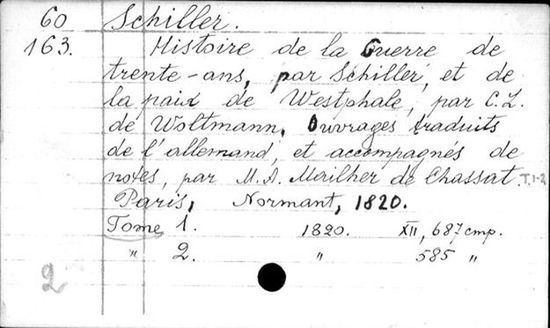 60 Schiller.
163. Histoire de la Guerre de
trente-ans, par Schiller, et de
la paix de Westphale, par C.L.
de Woltmann. Ouvrages traduits
de l'allemand, et accompagnés de
notes, par M.A. Mailher de Chassat. T.1-2
Paris, Normant, 1820.
Tome 1. 1820. XII, 687 стр.
" 2. " 585 "
2